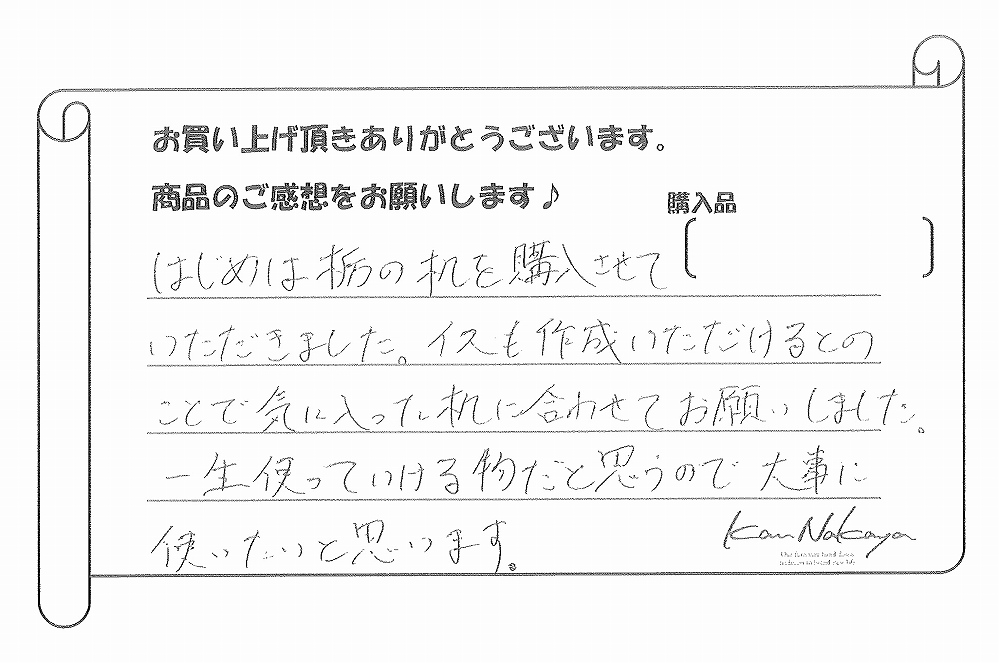 お買い上げ頂きありがとうございます。
商品のご感想をお願いします♪
購入品
はじめは栃の机を購入させて
いただきました。イスも作成いただけるとの
ことで気に入った机に合わせてお願いしました。
一生使っていける物だと思うので大事に
使いたいと思います。
Kan Nakaya